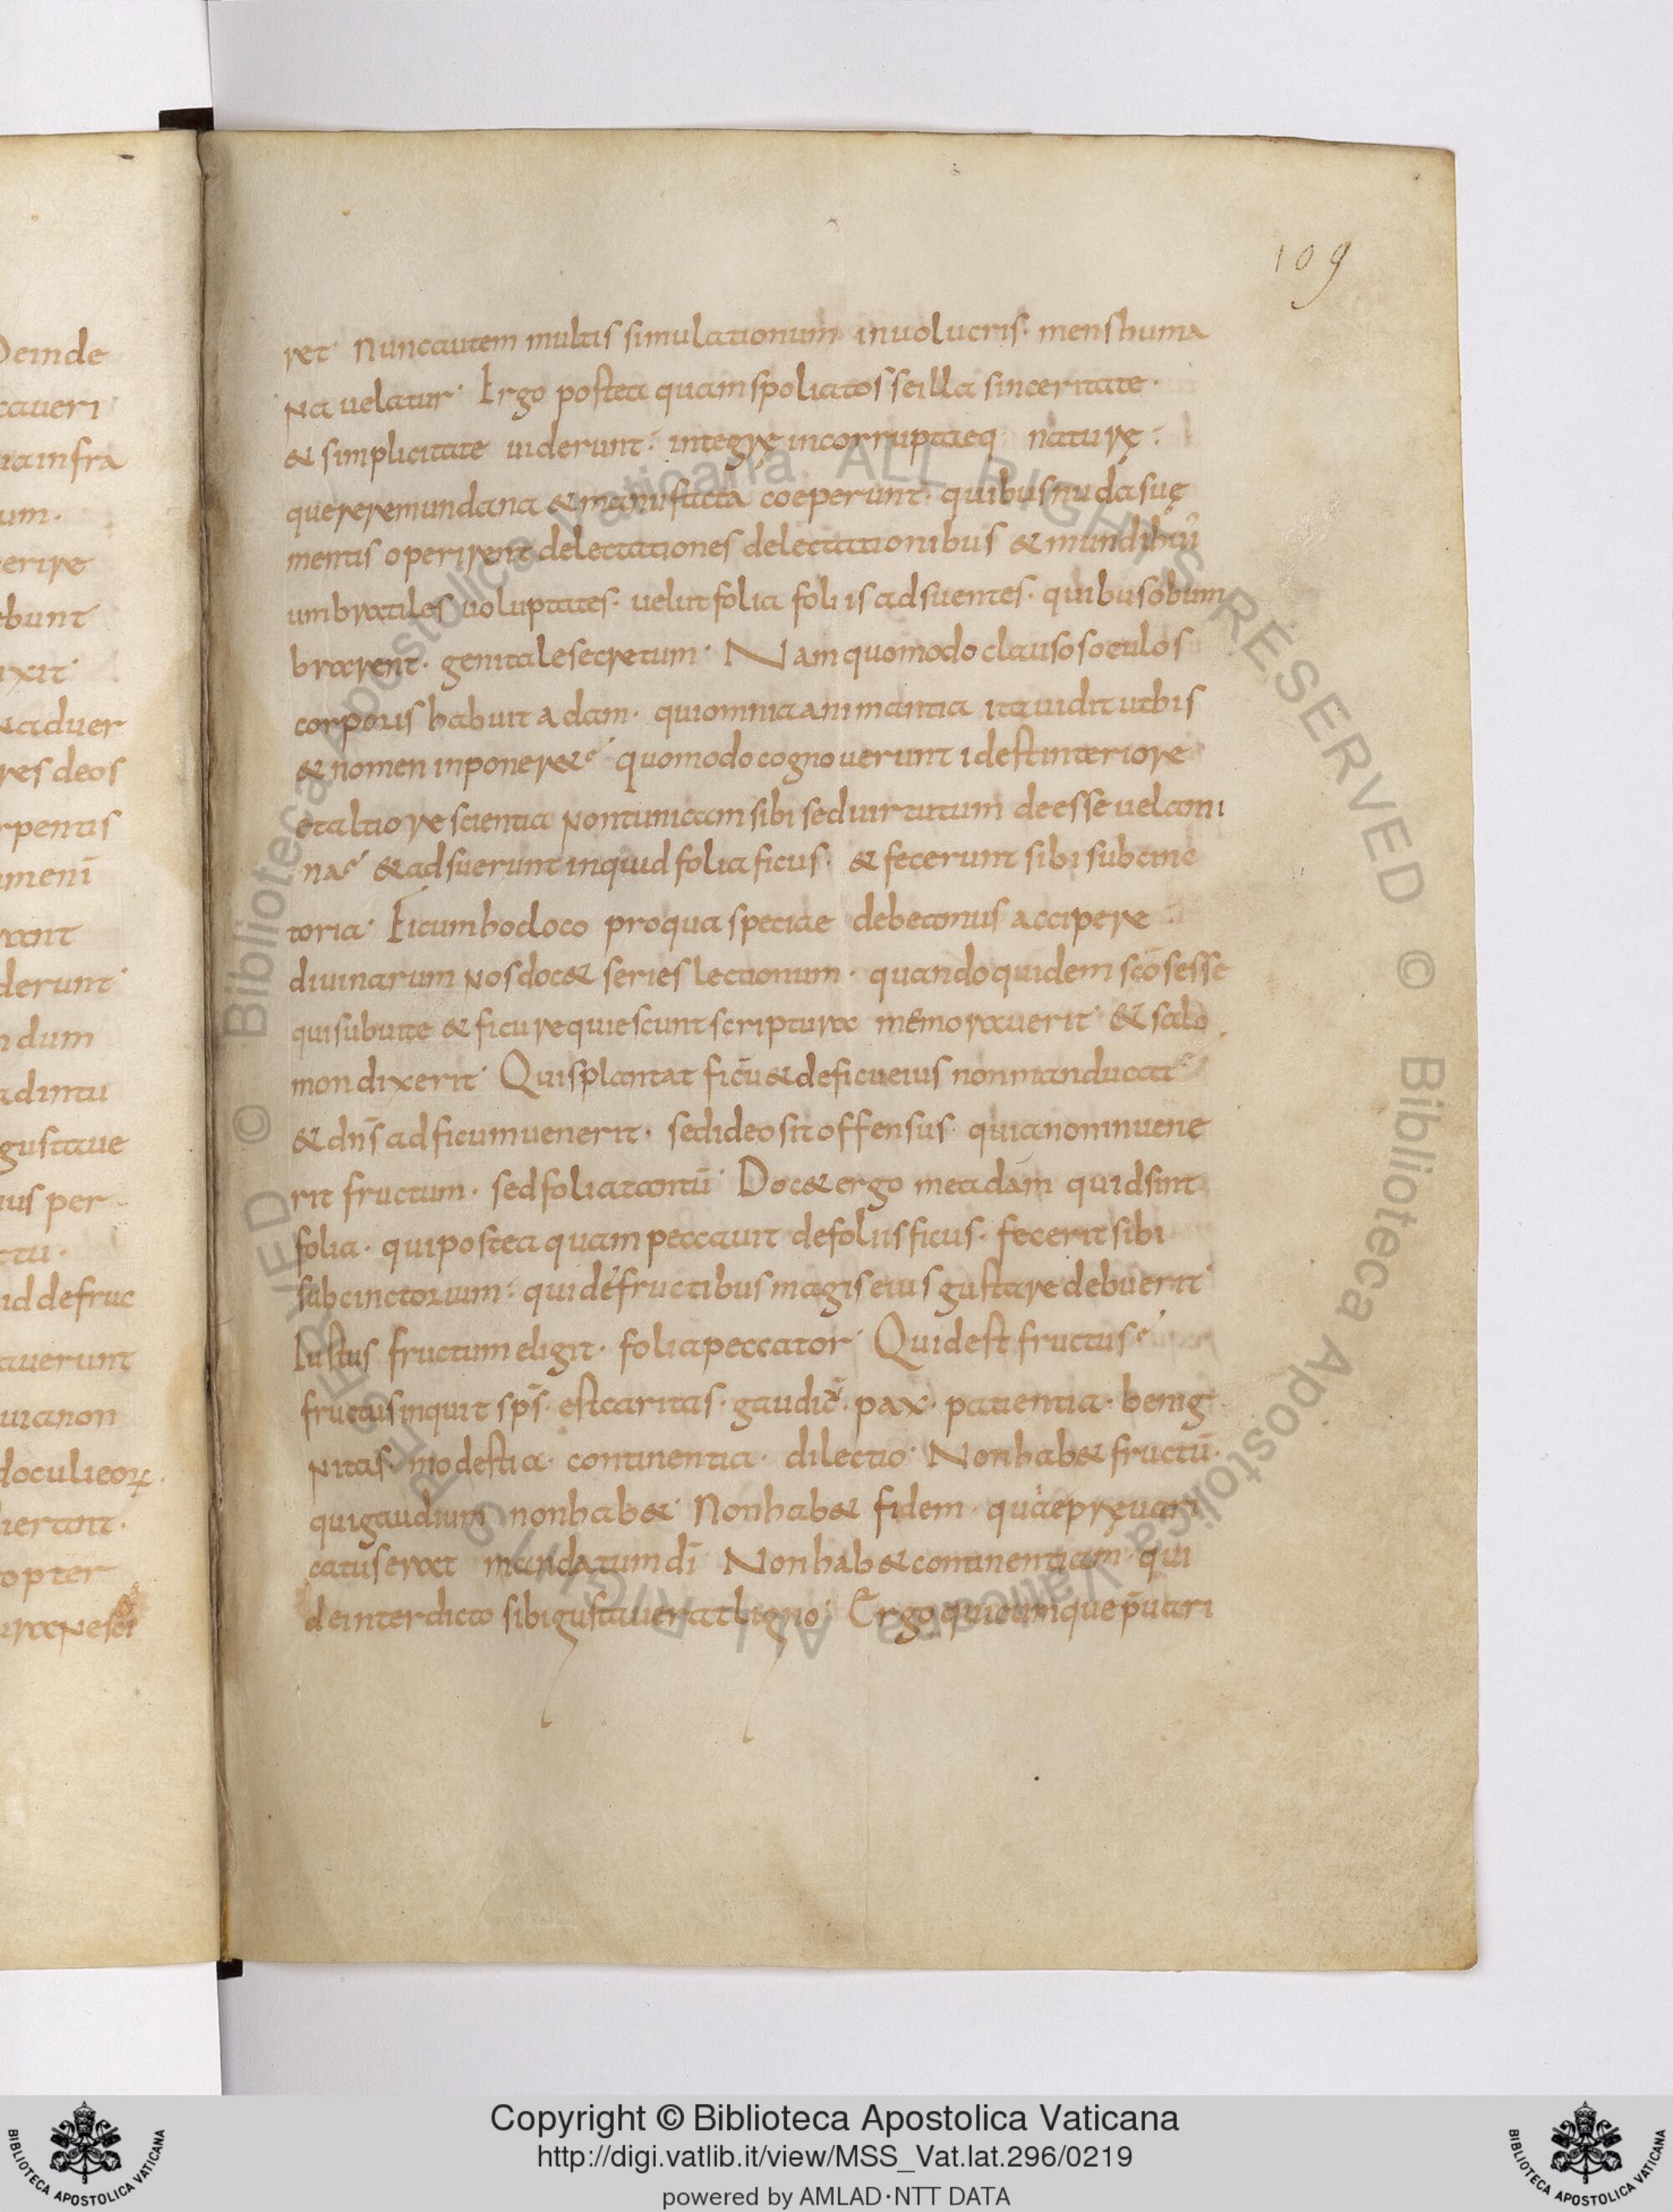 Deinde
caueri
ia infra
um.
erire
ebunt
ixit
naduer
res deos
rpentis
imenī
rant
derunt
ndum
adintu
gustaue
ius per
ctu.
id defruc
auerunt
uianon
doculieoꝝ.
ierant.
opter
uranesci
109
ret. Nunc autem multis simulationum inuolucris. mens huma
na uelatur. Ergo postea quam spoliatos se illa sinceritate.
& simplicitate uiderunt. integrę incorruptaeq naturę.
querere mundana & manufacta coeperunt. quibus nuda suę
mentis operirent delectationes delectationibus & mundi hui'
umbratiles uoluptates. uelut folia foliis adsuentes. quibus obum
brarent. genitale secretum. Nam quomodo clausos oculos
corporis habuit adam. qui omnia animantia ita uidit ut his
& nomen inponer& quomodo cognouerunt id est interiore
et altiore scientia non tunicam sibi sed uirtutum deesse uelami
na & adsuerunt inquid folia ficus. & fecerunt sibi subcinc
toria. Ficum hoc loco pro qua speciae debeamus accipere
diuinarum nos doc& series lectionum. quando quidem scōs esse
qui sub uite & ficu requiescunt scriptura memorauerit & salo
mon dixerit. Quis plantat ficū & de ficu eius non manducat
& dnš ad ficum uenerit. sed ideo sit offensus. quia non inuene
rit fructum. sed folia tantū. Doc& ergo me adam quid sint
folia. qui postea quam peccauit de foliis ficus. fecerit sibi
subcinctorium. qui de fructibus magis eius gustare debuerit
Iustus fructum eligit. folia peccator. Quid est fructus
fructus inquit sp̄s. est caritas. gaudiū. pax. patientia. benig
nitas modestia. continentia. dilectio. Non hab& fructū.
qui gaudium non hab&. Non hab& fidem. quae pręuari
catus erat mandatum dī Non hab& continentiam. qui
de interdicto sibi gustauerat ligno. Ergo quicumque p̄uari
Copyright © Biblioteca Apostolica Vaticana
http://digi.vatlib.it/view/MSS_Vat.lat.296/0219
powered by AMLAD·NTT DATA
BIBLIOTECA APOSTOLICA VATICANA
BIBLIOTECA APOSTOLICA VATICANA
© Biblioteca Apostolica Vaticana ALL RIGHTS RESERVED © Biblioteca Apostolica Vaticana ALL RIGHTS RESERVED